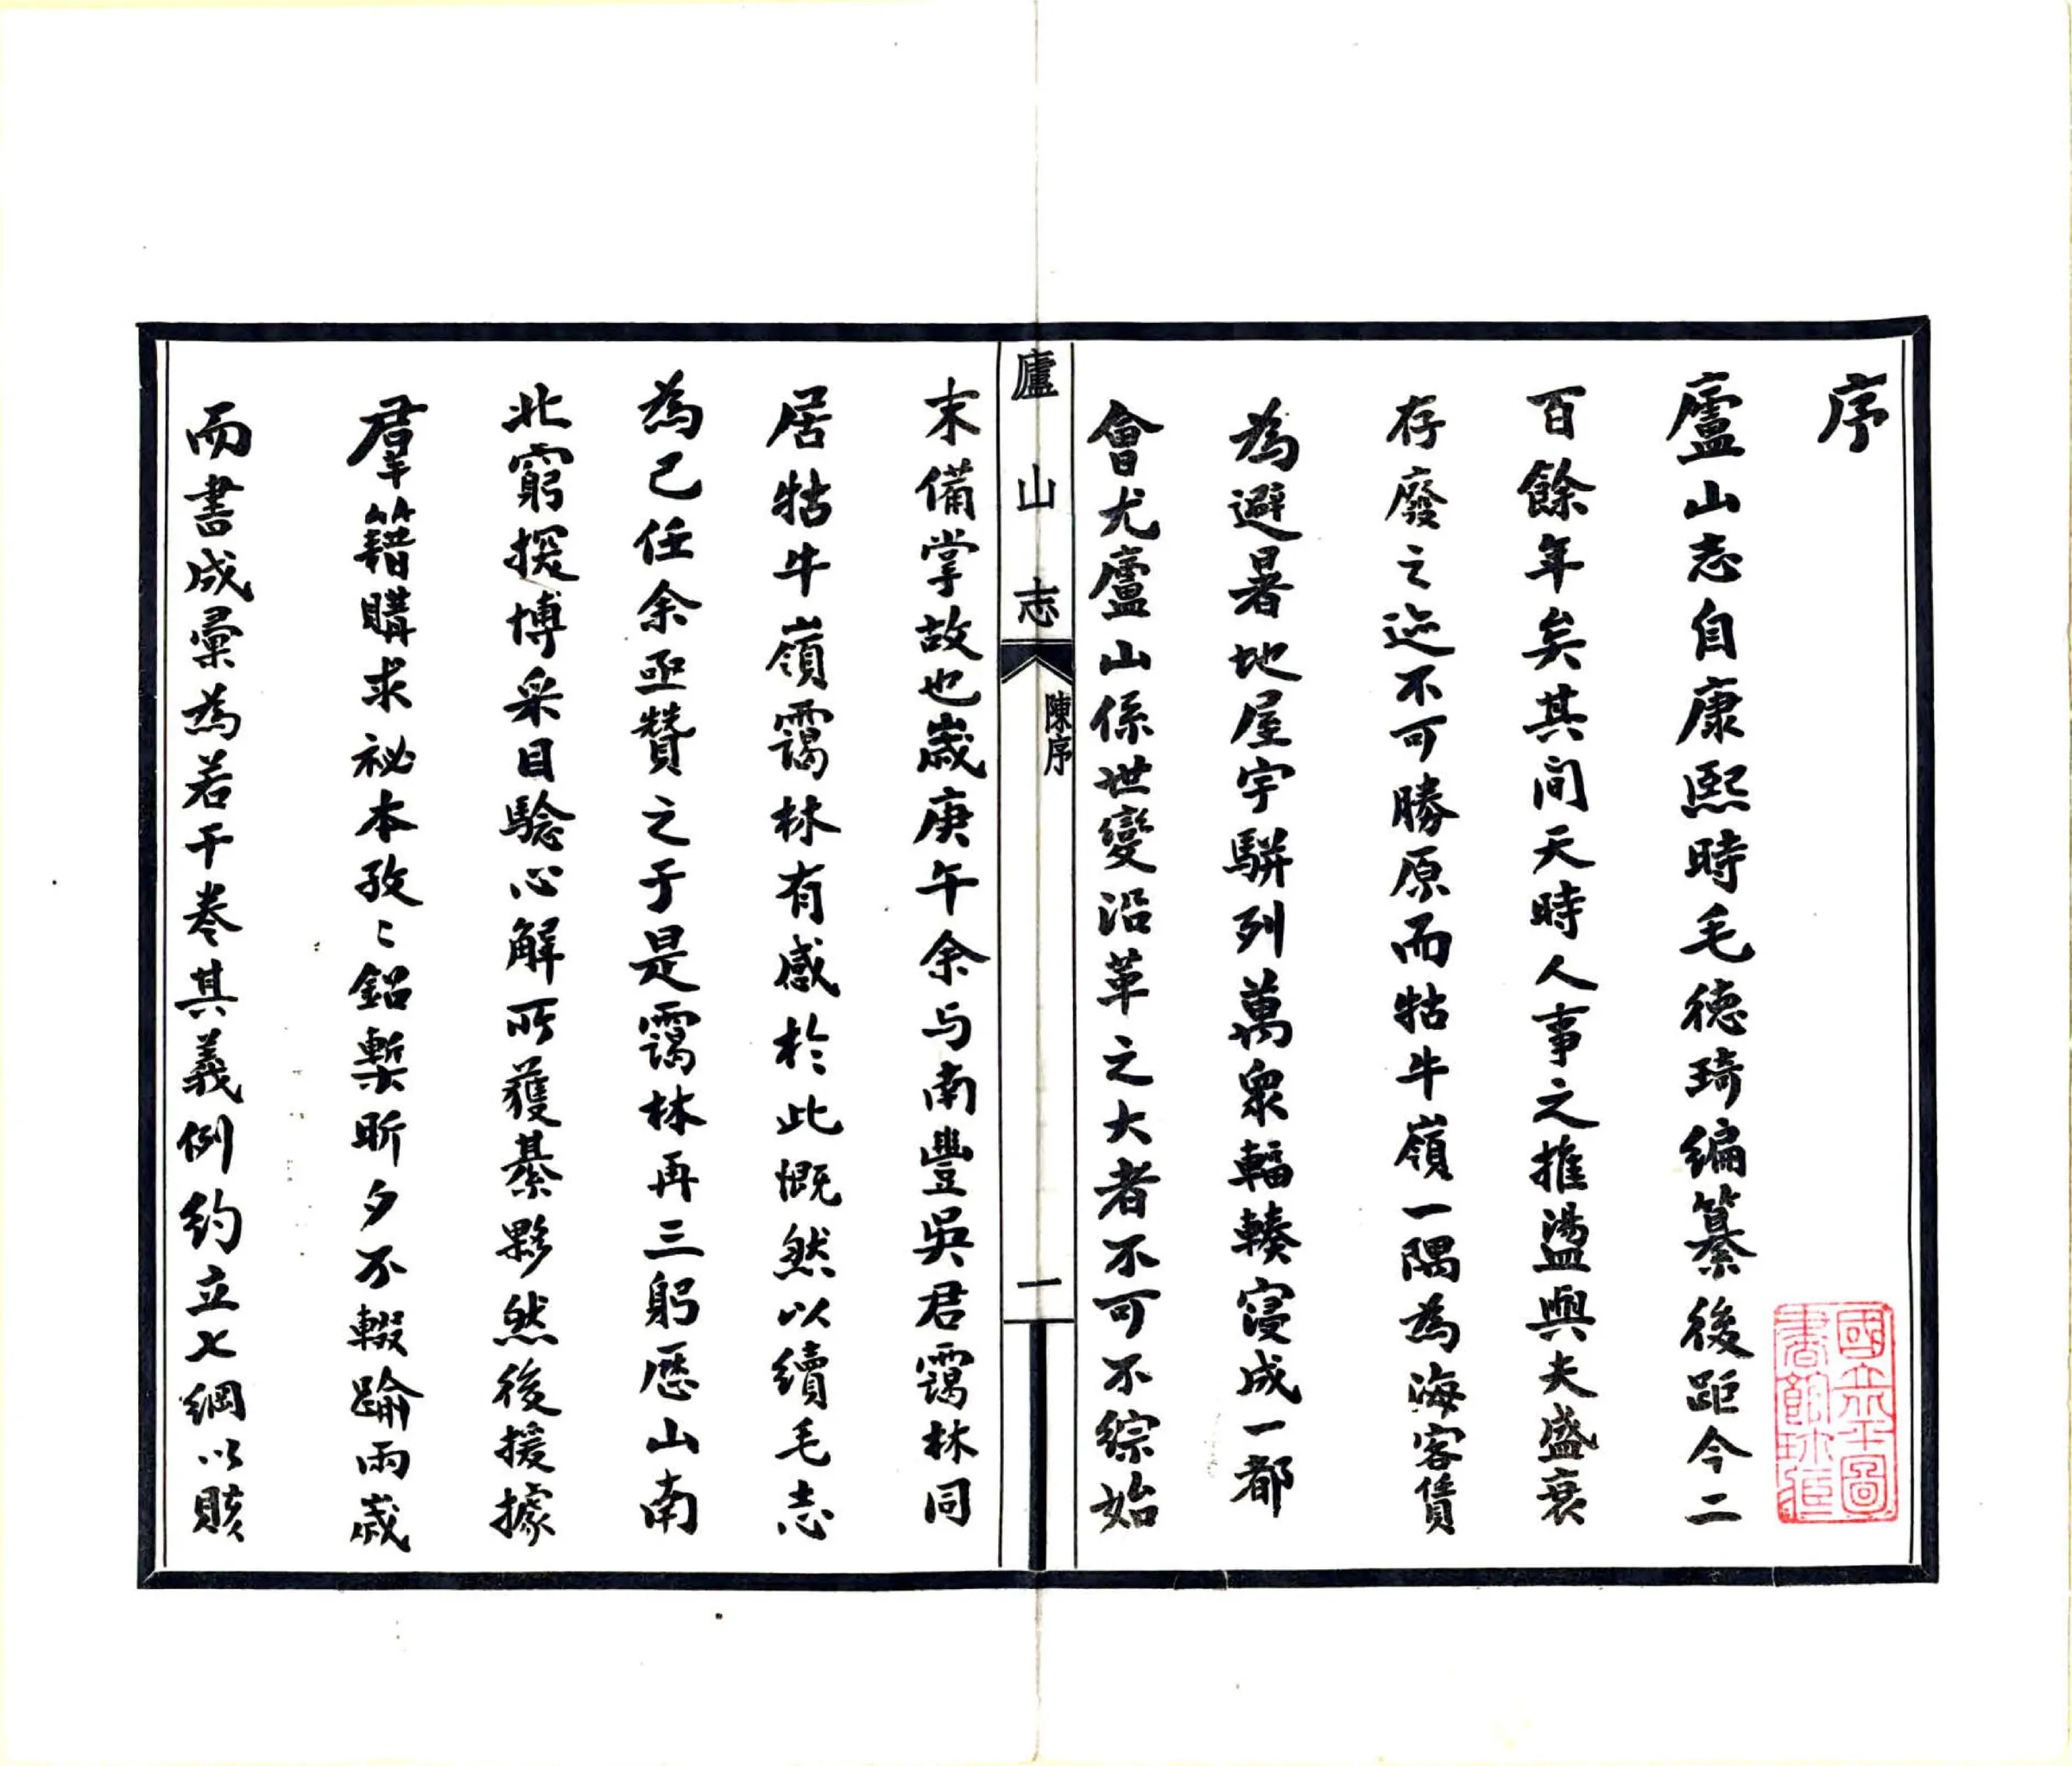 序
廬山志自康熙時毛德琦編纂後距今二
百餘年矣其間天時人事之推盪與夫盛衰
存廢之迹不可勝原而牯牛嶺一隅為海客賃
為避暑地屋宇駢列萬眾輻輳寖成一都
會尤廬山係世變沿革之大者不可不綜始
廬山志
陳序
一
末備掌故也歲庚午余与南豐吳君靄林同
居牯牛嶺靄林有感於此慨然以續毛志
為己任余亟贊之于是靄林再三躬歷山南
北窮探博采目驗心解所獲綦夥然後援據
羣籍購求祕本孜〻鉛槧昕夕不輟踰兩歲
而書成彙為若干卷其義例約立七綱以賅
國立北平圖
書館珍藏